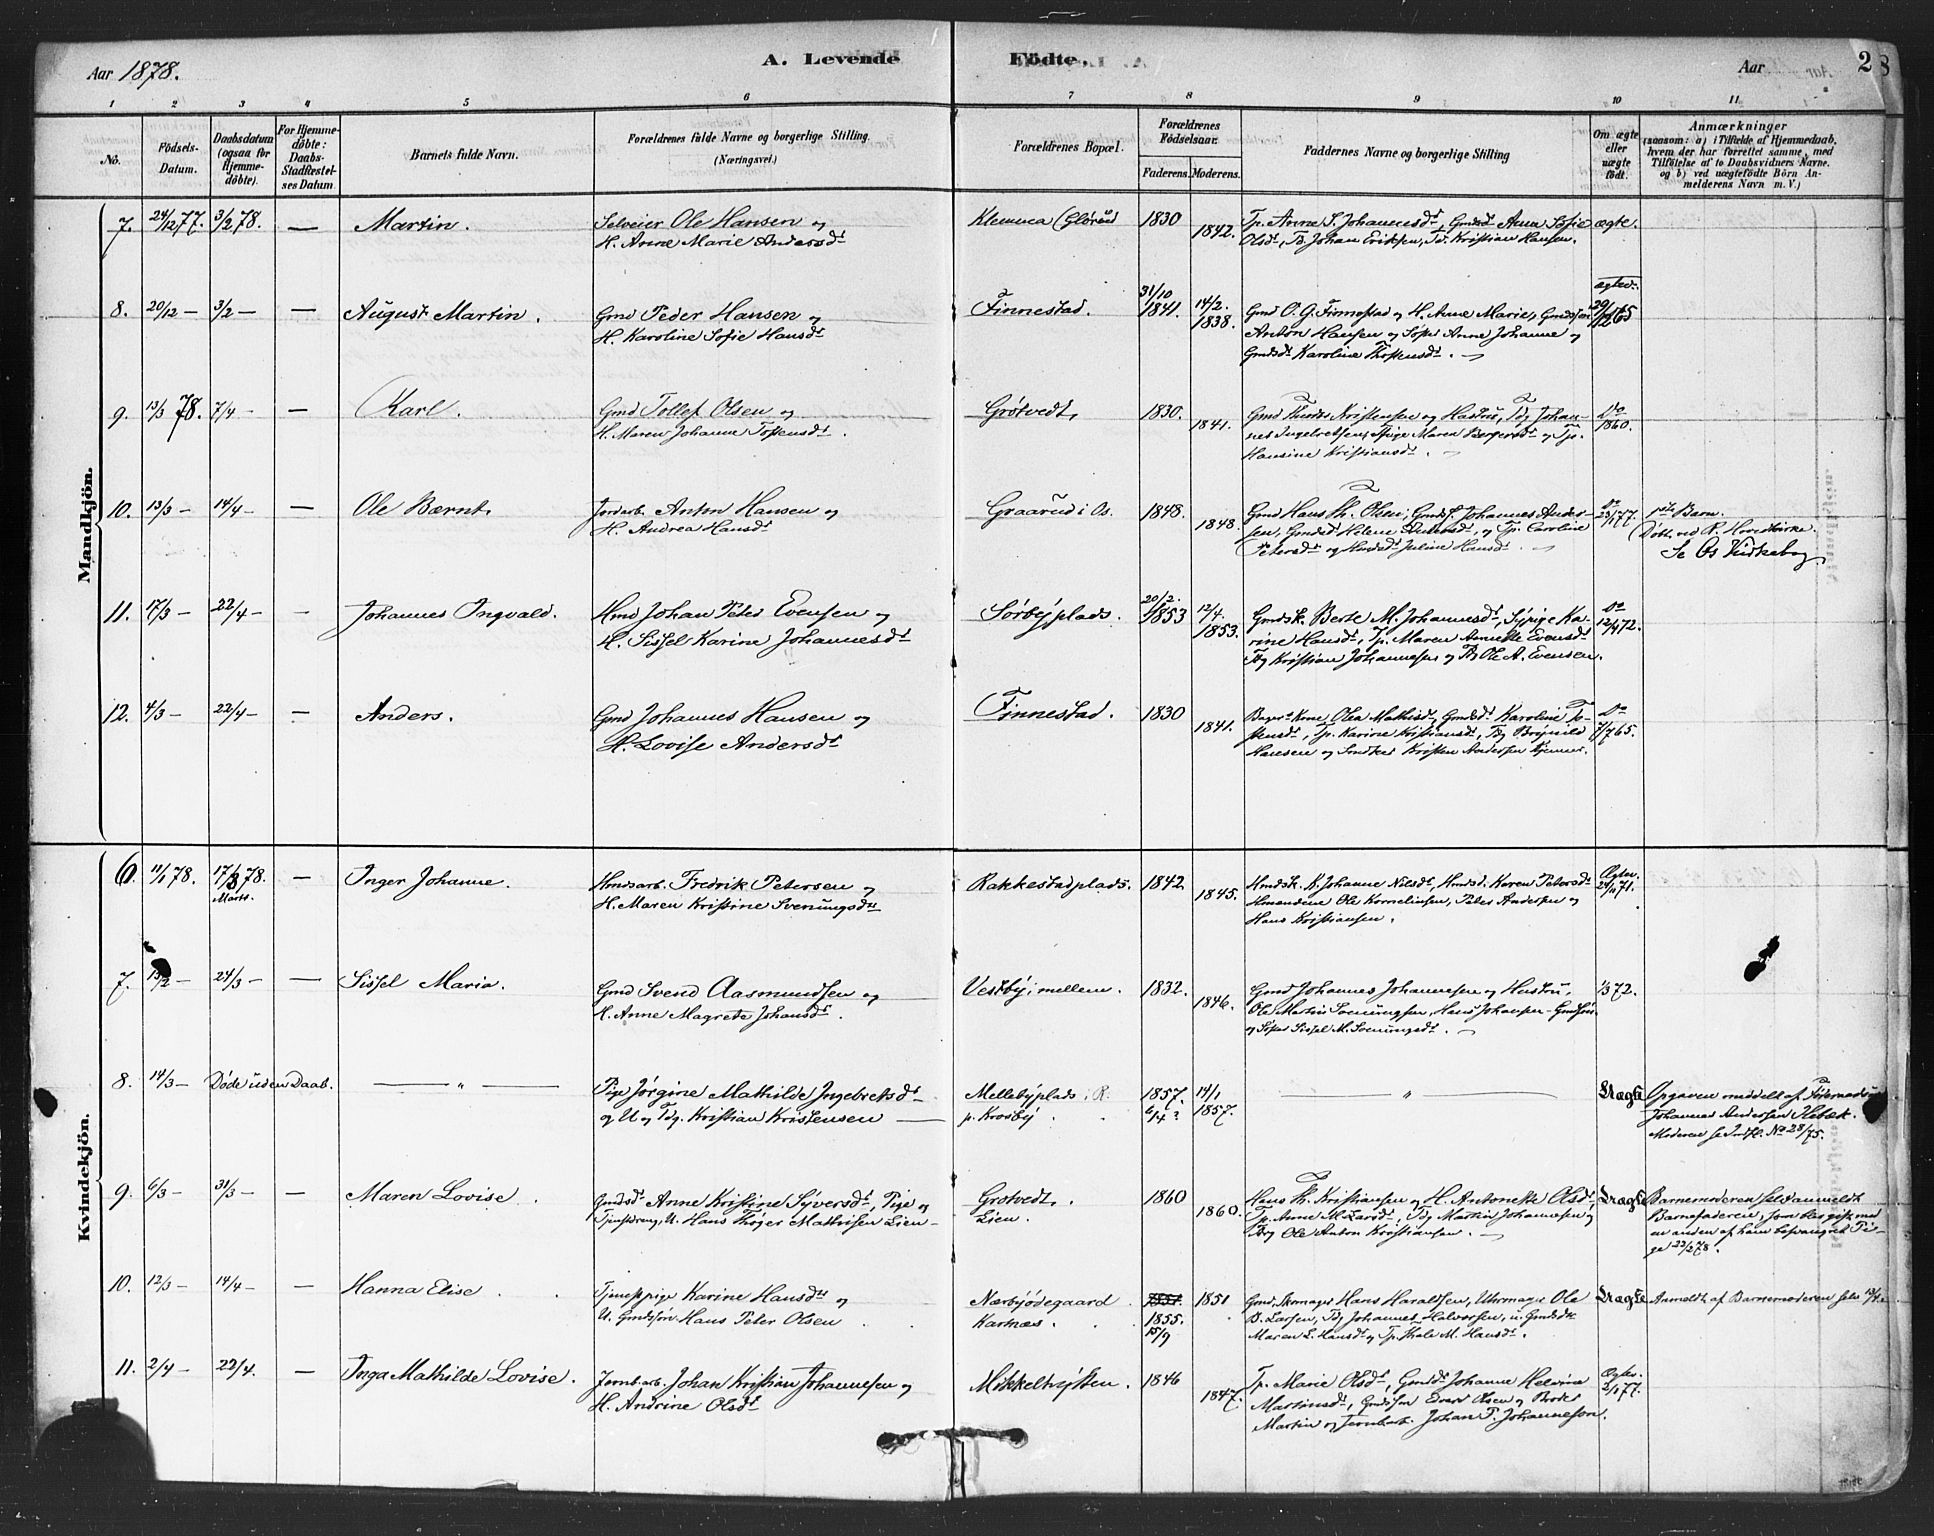 Aar 1878.
A. Levende
Födte.
Aar
2
1 2 3 4 5 6 7 8 9 10 11
No.
Födsels-
Datum.
Daabsdatum
(ogsaa for
Hjemme-
döbte).
For Hjemme-
döbte:
Daabs-
Stadfæstel-
ses Datum
Barnets fulde Navn.
Forældrenes fulde Navne og borgerlige Stilling.
(Næringsvei.)
Forældrenes Bopæl.
Forældrenes
Födselsaar.
Faderens. Moderens.
Faddernes Navne og borgerlige Stilling
Om ægte
eller
uægte
født.
Anmærkninger
(saasom: a) i Tilfælde af Hjemmedaab,
hvem der har forrettet samme, med
Tilföielse af to Daabsvidners Navne,
og b) ved uægtefödte Börn An-
melderens Navn m. V.)
Mandkjön.
7. 24/12 77. 3/2 78. — Martin.
Selveier Ole Hansen og
H. Anne Marie Andersdt
Klemma (Glörud
1830 1842.
Tp. Anne S. Johannesdt, Gmdsdt Anna Sofie
Olsdt, Tb Johan Eriksen, Td. Kristian Hansen.
ægte.
8. 20/12 — 3/2 — — August Martin.
Gmd Peder Hansen og
H. Karoline Sofie Hansdt
Finnestad.
31/10 1841. 14/2 1838.
Gmd O. G. Finnestad og H. Anne Marie, Gmdssön
Anton Hansen og Søster Anne Johanne og
Gmdsdt Karoline Thostensdt.
ægte.
29/12 65
9. 13/3 78. 7/4 — — Karl.
Gmd Tollef Olsen og
H. Maren Johanne Tostensdt.
Grötvedt,
1830. 1841.
Gmd Kristensen og Hustru, Tdg Johan-
nes Ingebretsen, Pige Maren Bergersdt og Tp.
Hansine Kristiansdt.
Do
1860.
10. 13/3 — 14/4 — — Ole Bærnt.
Jordarb. Anton Hansen og
H. Andrea Hansdt
Graarud i Os.
1848. 1848.
Gmd Hans Th. Olsen, Gmdsf. Johannes Ander-
sen, Gmdsd Helene, og Tp. Caroline
Petersdt og Husdt Juline Hansdt.
Do
23/1 77.
1ste Barn.
Döbt ved R. Hovedkirke.
Se Os Kirkebog.
11. 17/3 — 22/4 — — Johannes Ingvald.
Hmd Johan Peter Evensen og
H. Sissel Karine Johannesdt
Sörbyplads.
20/2 1853 12/4. 1853.
Gmdsk. Berte M. Johannesdt, Sypige Ka-
rine Hansdt, Tp. Maren Annette Evensdt
Tdg Kristian Johannesen og Tdg Ole A. Evensen.
Do
12/4 72.
12. 4/3 — 22/4 — — Anders.
Gmd Johannes Hansen og
H. Lovise Andersdt
Finnestad.
1830 1841.
Bagerkone Olea Mathisdt, Gmdsdt Karoline To-
stensdt, Tp. Karine Kristiansdt, Tdg Brynild
Hansen og Kristen Andersen
Do
7/7 65.
Kvindekjön.
6. 11/1 78. 17/3 78. — Inger Johanne.
Marts.
Hmdsarb. Fredrik Petersen og
H. Maren Kristine Svenungsdt
Rakkestadplads.
1842. 1845.
Hmdsk. K. Johanne Nilsdt, Hmdsd. Karen Petersdt
Hmændene Ole Kornelinsen, Peter Andersen og
Hans Kristiansen.
Ægte.
24/11 71.
7. 15/2 — 24/3 — — Sissel Maria.
Gmd Svend Aasmundsen og
H. Anne Magrete Johansdt.
Vestby, mellem.
1832. 1846.
Gmd Johannes Johannesen og Hustru,
Ole Martin Svenungsen, Hans Johansen Gmdssön
og Søster Sissel M. Svenungsdt.
1/3 72.
8. 14/3 — Döde uden Daab. — „ —
Pige Jörgine Mathilde Ingebretsdt
og U. og Tdg. Kristian Kristensen
Mellebyplads, R.
p. Krosby
1857. 14/1
6/4? 1857.
„
Uægte
Opgaven meddelt af Jordemoderen
Johannes Andersen Klebæk.
Moderen se Indfl. No 28/75.
9. 6/3 — 31/3 — — Maren Lovise.
Gmdsdt. Anne Kristine Syversdt, Pige og
Tjenstdreng, U. Hans Thöger Mathisen Lien
Grötvedt,
Lien.
1860 1860.
Hans Th. Kristiansen og H. Antonette Olsdt
Tp. Anne M. Larsdt, Tdg Martin Johannesen,
Tdg Ole Anton Kristiansen.
Uægte
Barnemoderen selv anmeldt
Barnefaderen, som blev gift med
en anden af ham besvangret Pi-
ge 22/2 78.
10. 12/3 — 14/4 — — Hanna Elise
Tjenestepige Karine Hansdt og
U. Gmdssön Hans Peter Olsen
Nærbyödegaard
Karnæs.
1851
1855.
15/9
Gmd, Skomager Hans Haraldsen, Uhrmager Ole
B. Larsen, Tdg Johannes Halvorsen, u. Gmdsdtr
Maren L. Hansdt og Tp. Thale M. Hansdt.
Uægte
Anmeldt af Barnemoderen selv
11. 2/4 — 22/4. — Inga Mathilde Lovise.
Jernb.arb. Johan Kristian Johannesen og
H. Andrine Olsdt
Mikkelhytten.
1846 1847.
Tp. Marie Olsdt, Gmdsdt Johanne Helvine
Martinsdt, Gmdssön Edvard Olsen og Broder
Martin og Jernb.arb. Johan P. Johannesen.
Ægte.
2/1 77.